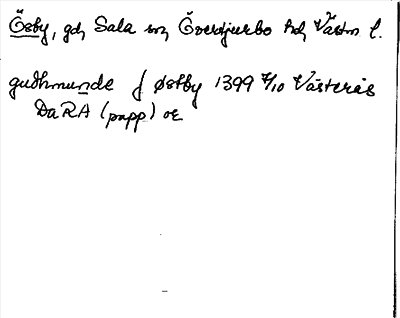 Ösby, gd, Sala sn, Överstjurbo hd, Västm l.
guðhmunde j østby 1399 7/10 Västerås
DaRA (papp) or